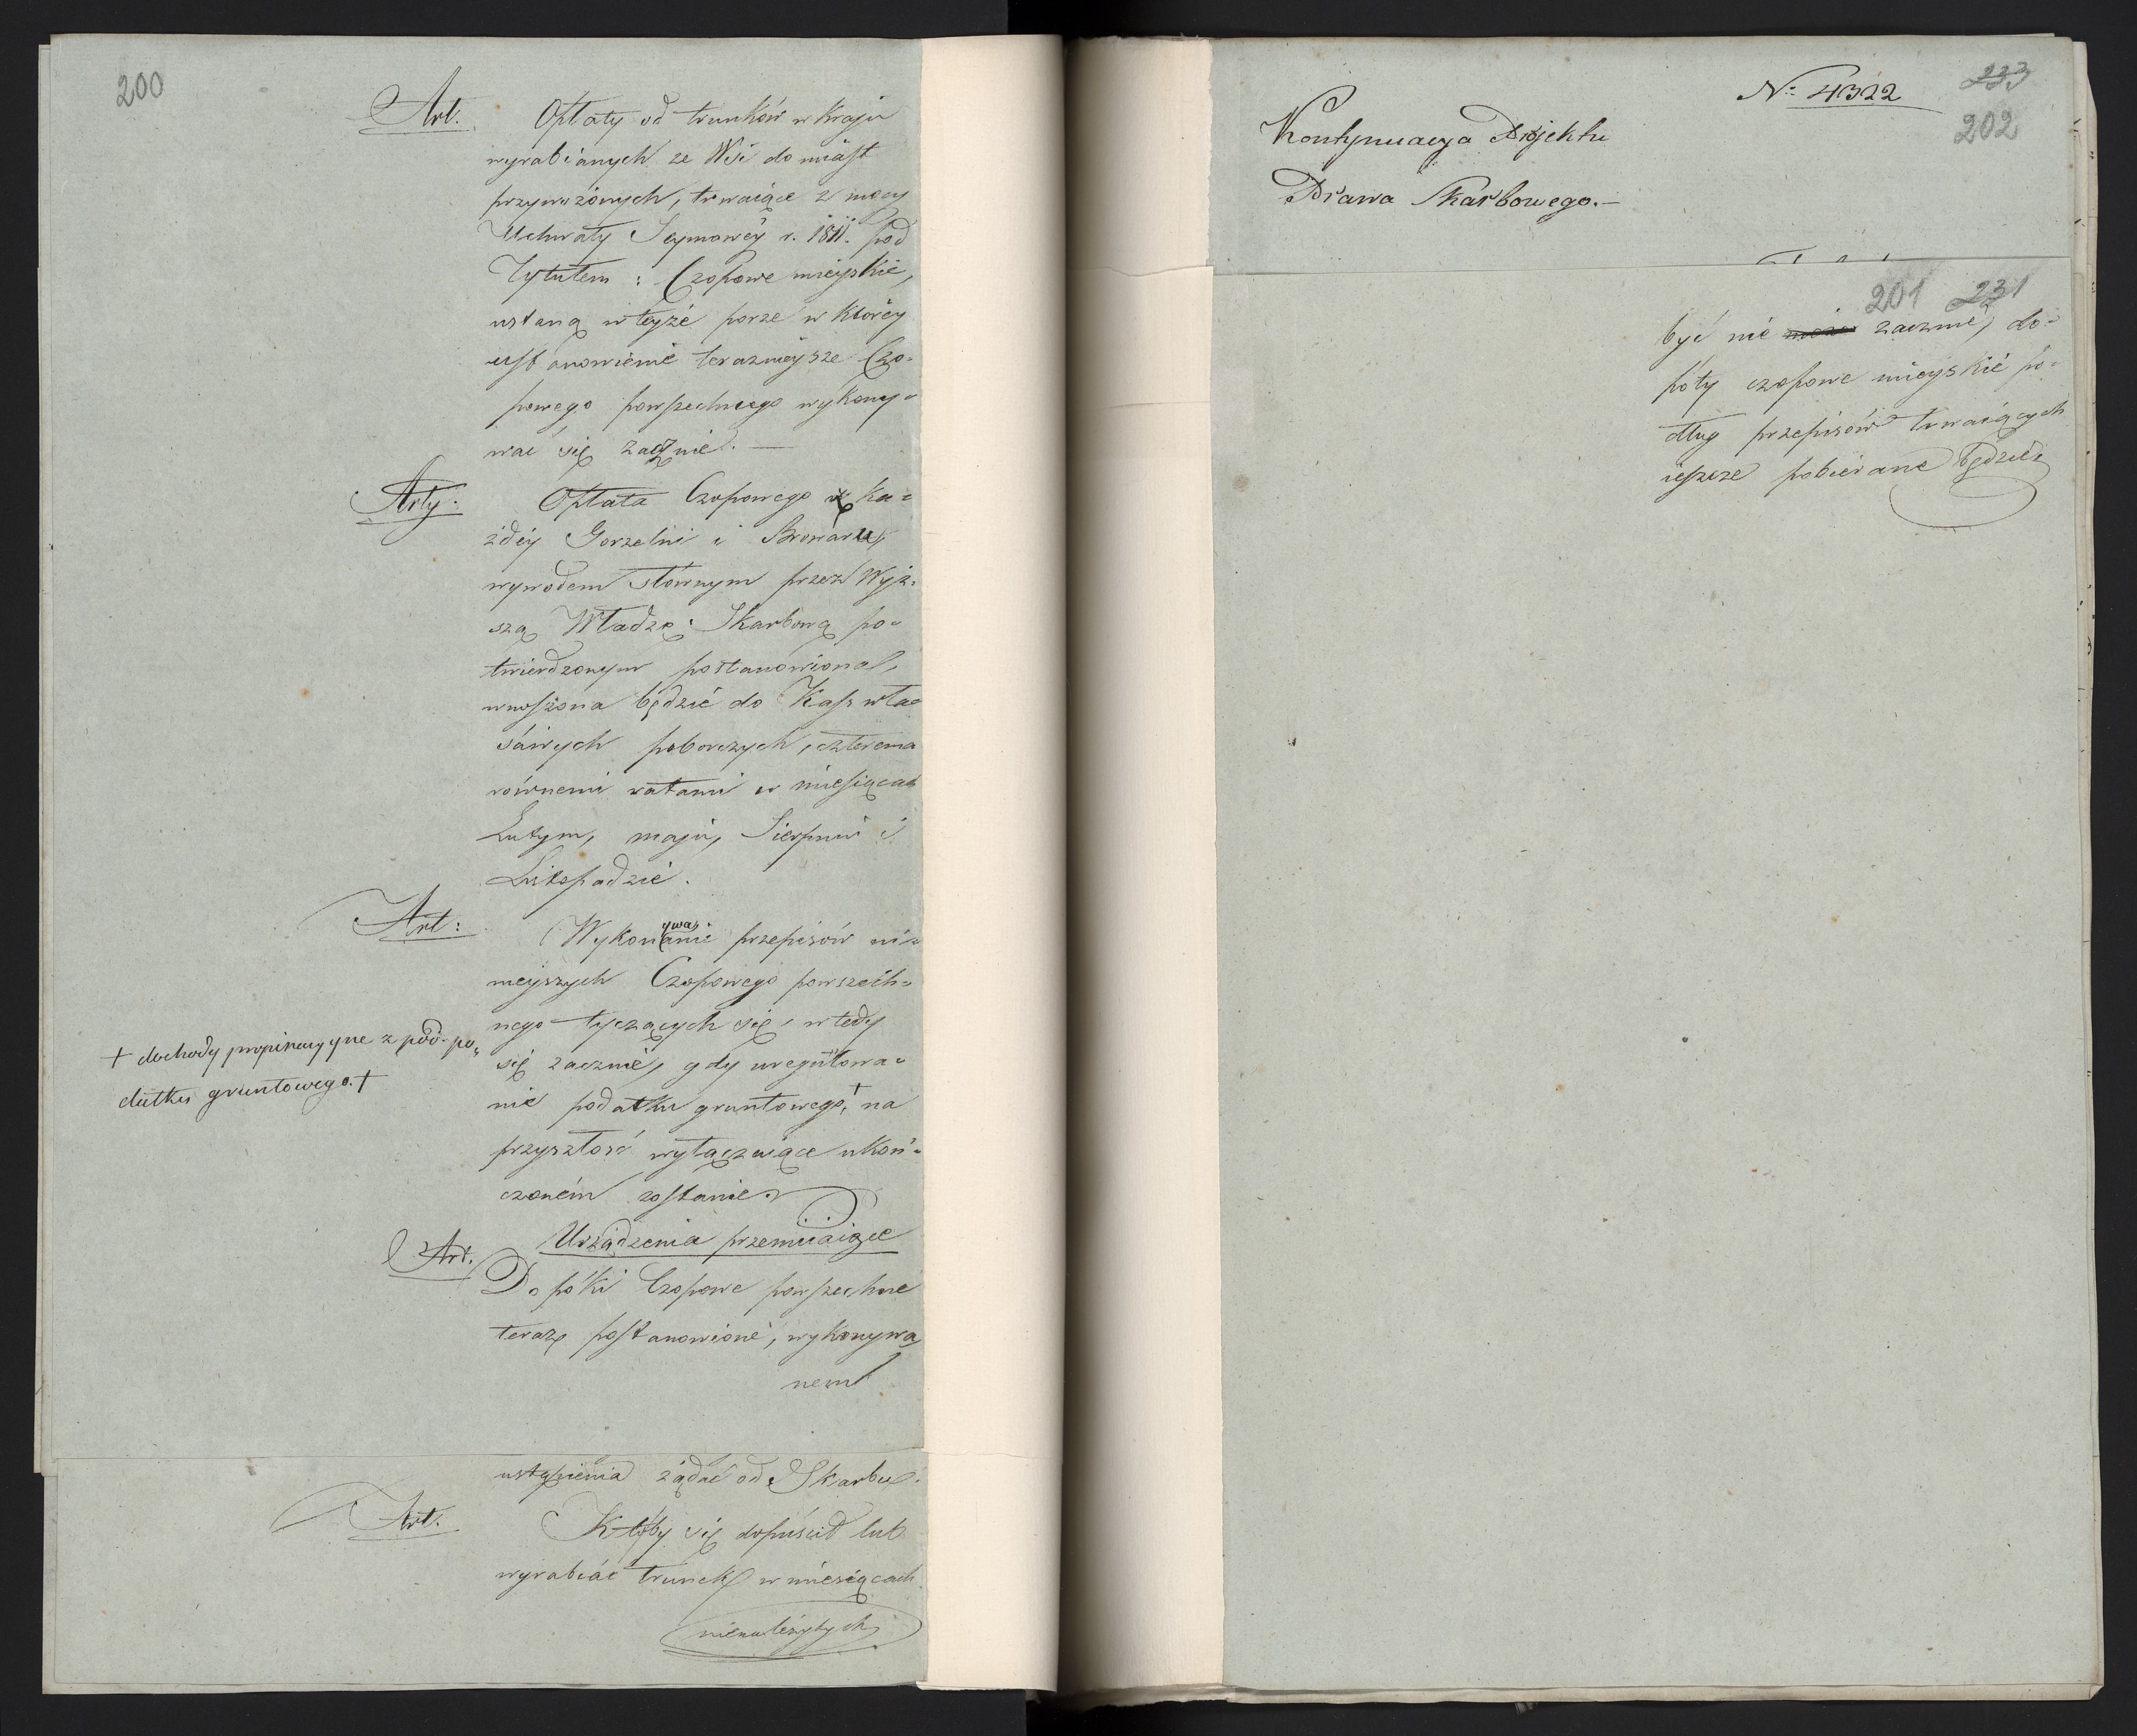 200
Art. Opłaty od trunków w Kraju
wyrabianych ze Wsi do miast
przywożonych, trwaiące z mocy
Uchwały Seymowéy r. 1811. pod
Tytułem: Czopowe mieyskie,
ustaną w teyże porze w któréy
ustanowienie teraznieysze Czo-
powego powszechnego wykony-
wać się zacznie. —
Arty: Opłata Czopowego z ka-
żdéy Gorzelni i Browaru,
wywodem słownym przez Wyż-
szą Władzę Skarbową po-
twierdzonym postanowiona,
wnoszona będzie do Kass wła-
ściwych poborczych, czterema
równemi ratami w miesiącach
Lutym, maju, Sierpniu i
Listopadzie.
Art: Wykonywanie przepisów ni-
nieyszych Czopowego powszech-
nego tyczących się, wtedy
się zacznie, gdy uregulowa-
nie podatku gruntowego, + na
przyszłość wyłączaiące ukoń-
czoném zostanie.
+ dochody propinacyyne z pod po-
datku gruntowego. +
Urządzenia przemiiaiące
Art. Do póki Czopowe powszechne
teraz postanowione, wykonywa-
nem
ustąpienia żądać od Skarbu.
Art. Ktoby się dopuścił lub
wyrabiać trunek w miesiącach
nienależytych
No 4322
233
202
Kontynuacya Projektu
Prawa Skarbowego. —
201 231
być nie zacznie, do-
póty czopowe mieyskie po-
dług przepisów trwaiących
ieszcze pobierane będzie